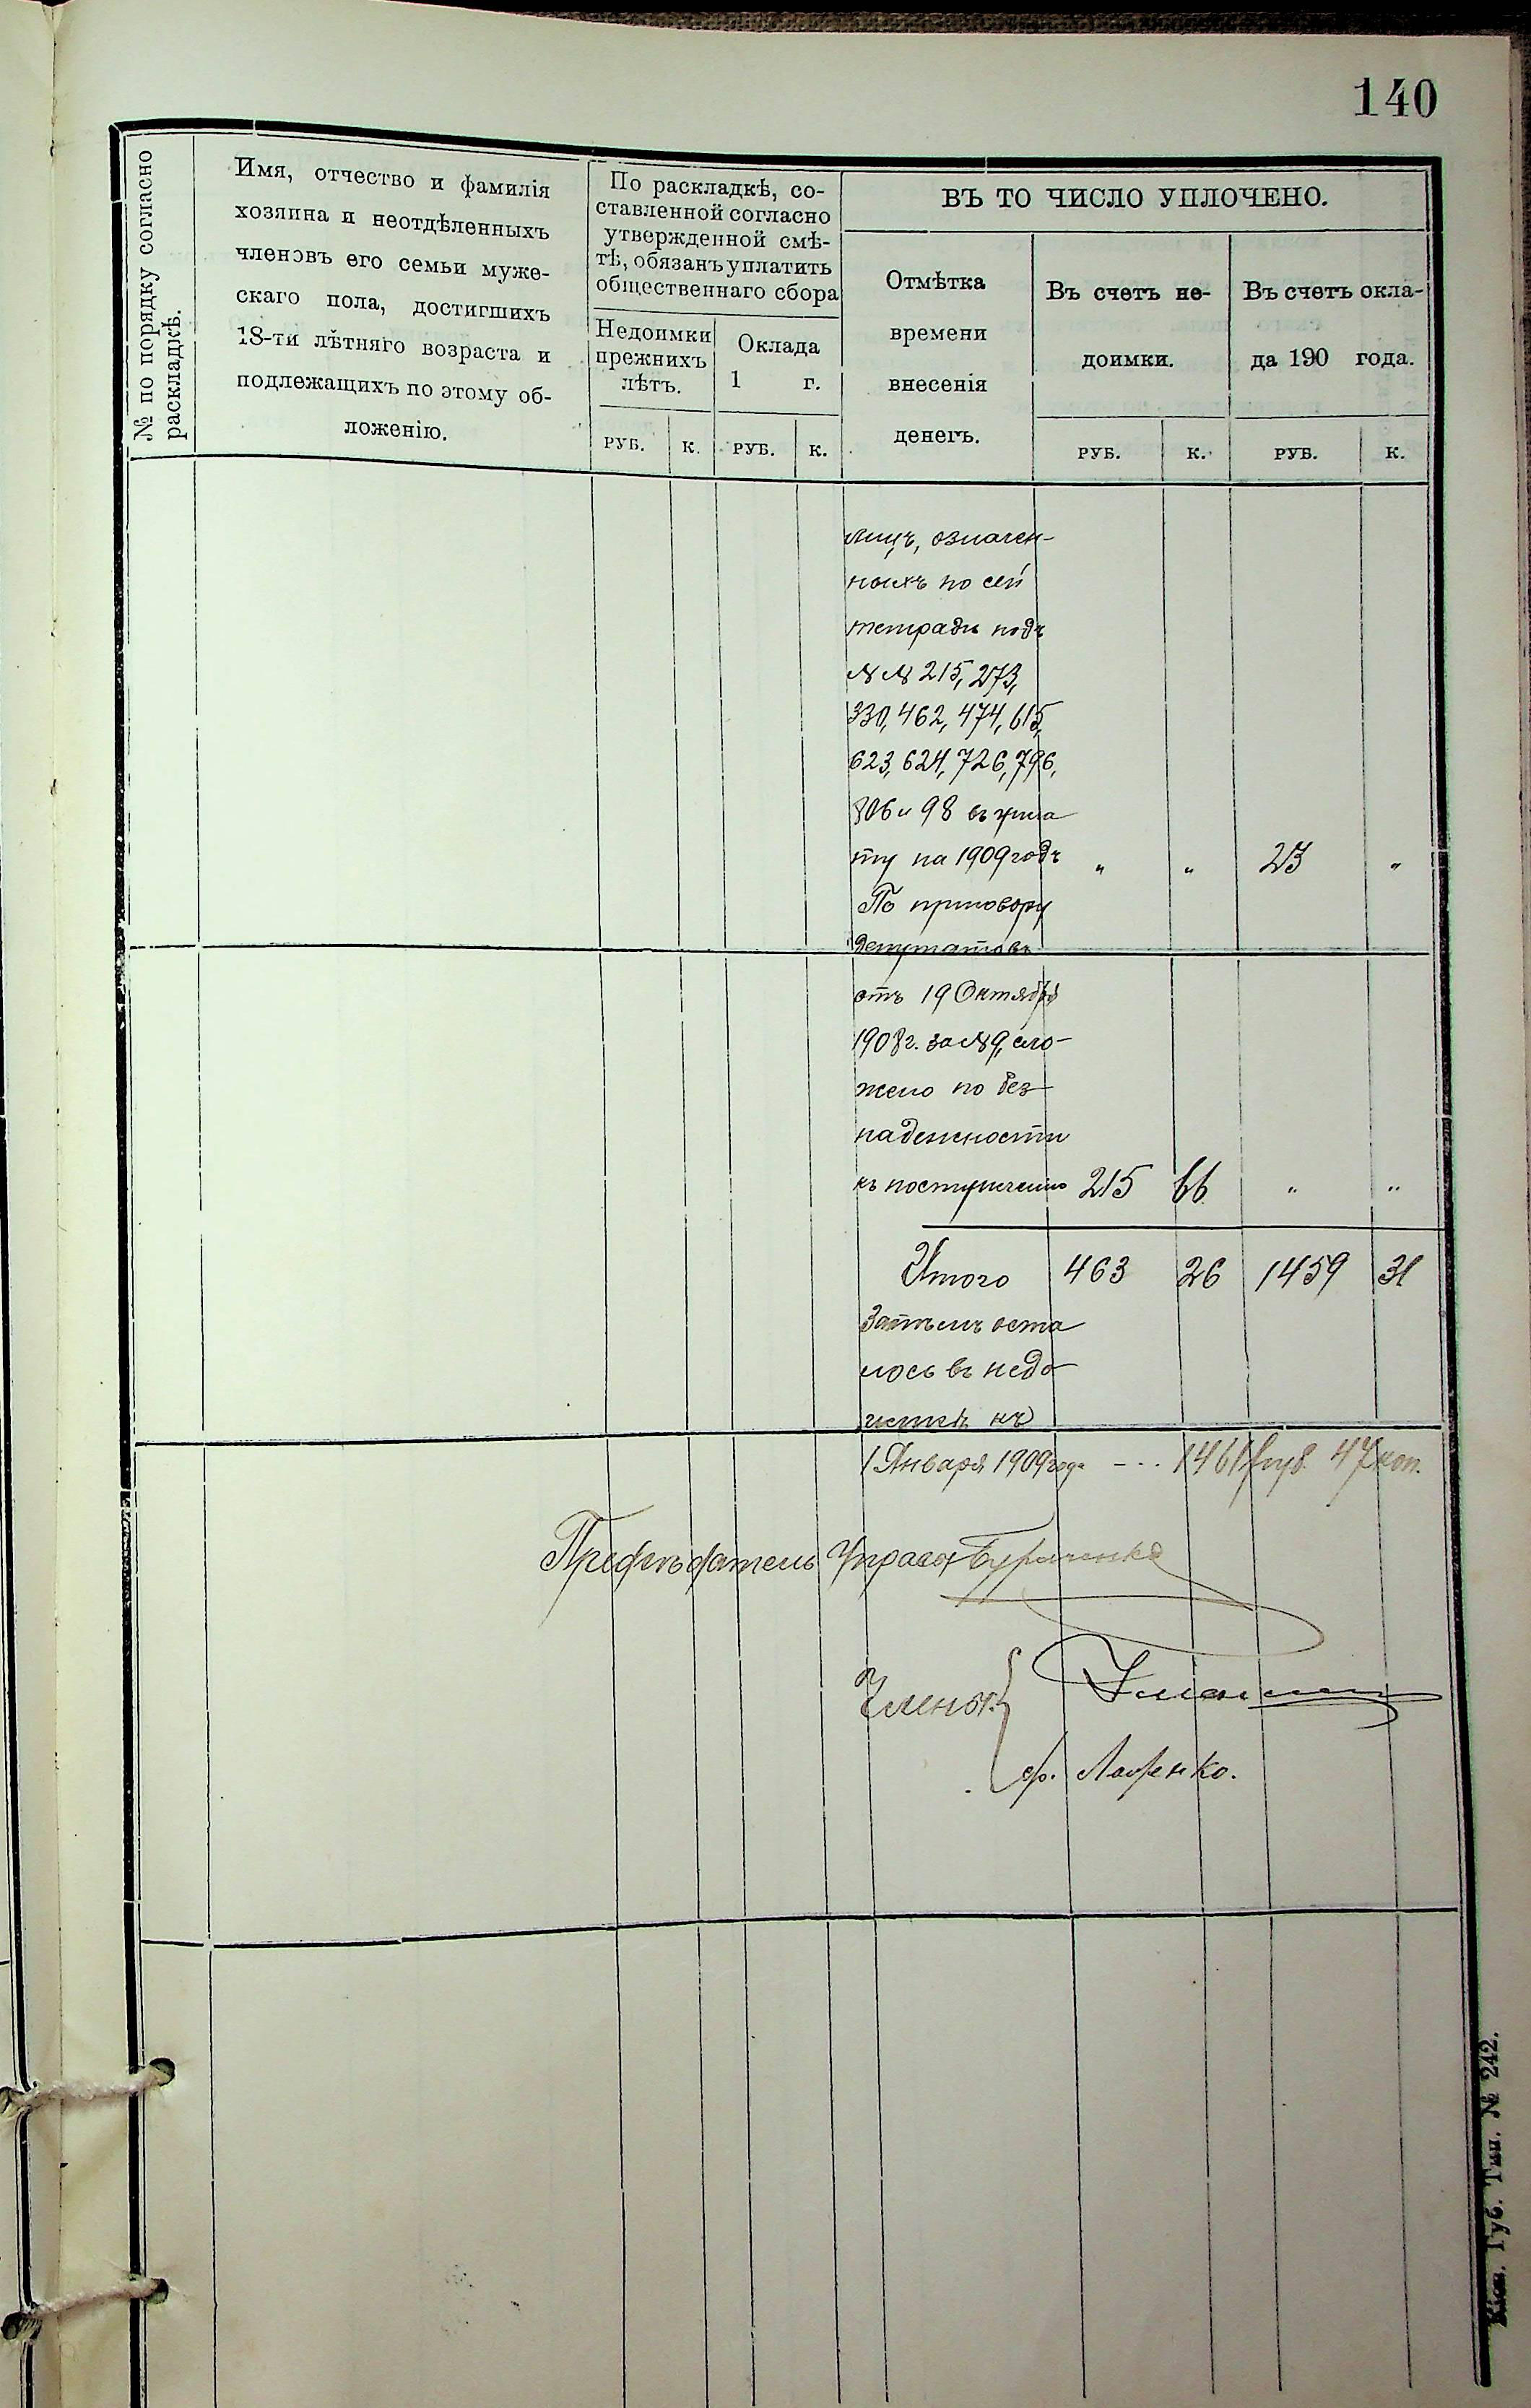 140
№ по порядку согласно
раскладкѣ.
Имя, отчество и фамилія
хозяина и неотдѣленныхъ
членовъ его семьи муже-
скаго пола, достигшихъ
18-ти лѣтняго возраста и
подлежащихъ по этому об-
ложенію.
По раскладкѣ, со-
ставленной согласно
утвержденной смѣ-
тѣ, обязанъ уплатить
общественнаго сбора
Недоимки
прежнихъ
лѣтъ.
Оклада
1 г.
РУБ. К. РУБ. К.
ВЪ ТО ЧИСЛО УПЛОЧЕНО.
Отмѣтка
времени
внесенія
денегъ.
Въ счетъ не-
доимки.
Въ счетъ окла-
да 190 года.
РУБ. К. РУБ. К.
лицъ, означен-
ныхъ по сей
тетради подъ
№№ 215, 273,
330, 462, 474, 615,
623, 624, 726, 796,
806 и 98 въ упла
ту на 1909 годъ „ „ 23 „
По приговору
депутатовъ
отъ 19 Октября
1908 г. за № 9, сло-
жено по без-
надежности
къ поступленію 215 66 „ „
Итого 463 26 1459 31
Затѣмъ оста
лось въ недо
къ
1 Января 1909 года - - - 1461 руб. 47 коп.
Предсѣдатель Управы
Члены:
Ф. Лавренко.
Кіев. Губ. Тип. № 242.